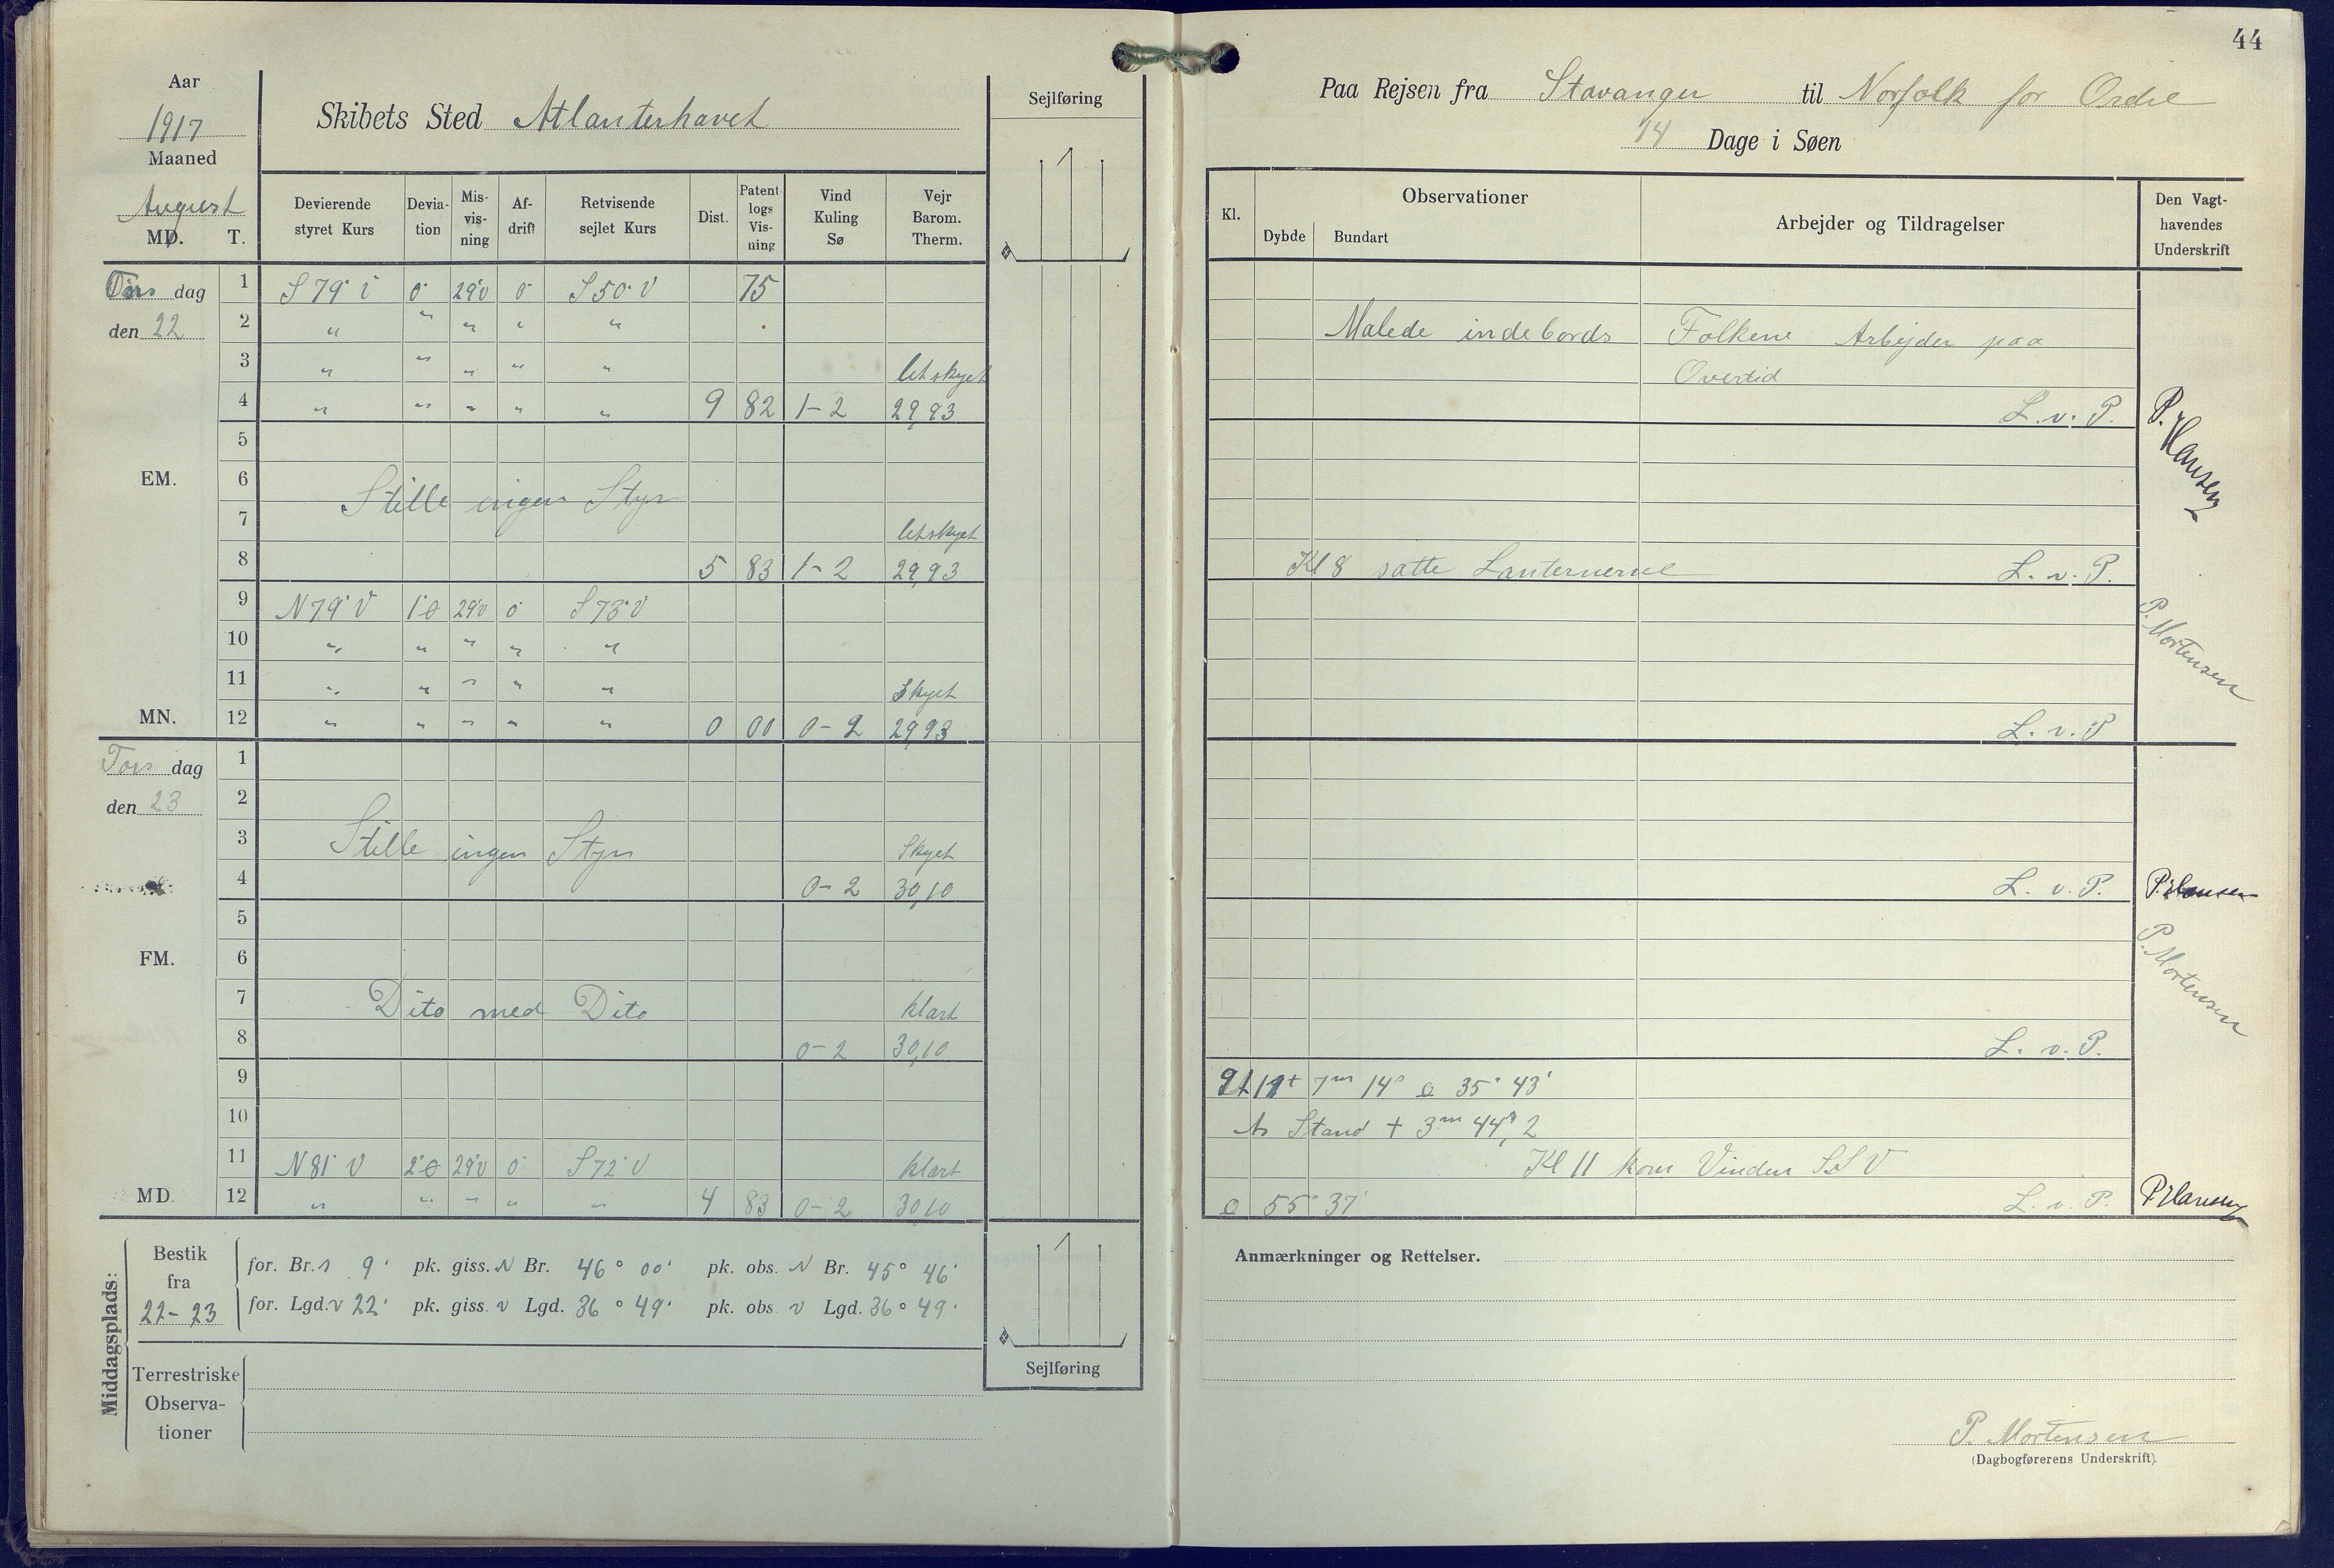 44
Aar
1917
Maaned
August
MD. T.
Skibets Sted Atlanterhavet
Sejlføring
Devierende styret Kurs
Devia-tion
Mis-vis-ning
Af-drift
Retvisende sejlet Kurs
Dist.
Patent-logs Vis-ning
Vind Kuling Sø
Vejr Barom. Therm.
dag 1 S 79° V 0° 29°V 0° S 50° V 75
den 22 2 " " " " "
3 " " " " " letskyet
4 " " " " " 9 82 1-2 29,93
5
EM. 6
Stille ingen Styr
7 letskyet
8 5 83 1-2 29,93
9 N 79° V 1°Ø 29°V 0° S 73° V
10 " " " " "
11 " " " " " Skyet
MN. 12 " " " " " 0 00 0-2 29,93
Tors dag 1
den 23 2
3 Stille ingen Styr Skyet
4 0-2 30,10
5
FM. 6
7 Dito med Dito klart
8 0-2 30,10
9
10
11 N 81° V 2°Ø 29°V 0° S 72° V klart
MD. 12 " " " " " 4 83 0-2 30,10
Middagsplads:
Bestik fra 22-23
for. Br. S 9' pk. giss. N Br. 46° 00' pk. obs. N Br. 45° 46'
for. Lgd. V 22' pk. giss. V Lgd. 36° 49' pk. obs. V Lgd. 36° 49'
Terrestriske Observa-tioner
Sejlføring
Paa Rejsen fra Stavanger til Norfolk for Ordre
14 Dage i Søen
Kl.
Observationer
Dybde Bundart
Arbejder og Tildragelser
Den Vagt-havendes Underskrift
Malede indebords Folkene Arbejder paa
Overtid
L. v. P. P. Hansen
Kl 8 satte Lanternerne L. v. P.
P. Mortensen
L. v. P
L. v. P. P. Hansen
P. Mortensen
L. v. P.
7m 14s 35° 43'
Stand + 3m 44s,2
Kl 11 kom Vinden SSV
55° 37' L. v. P. P Hansen
Anmærkninger og Rettelser.
P. Mortensen
(Dagbogførerens Underskrift).